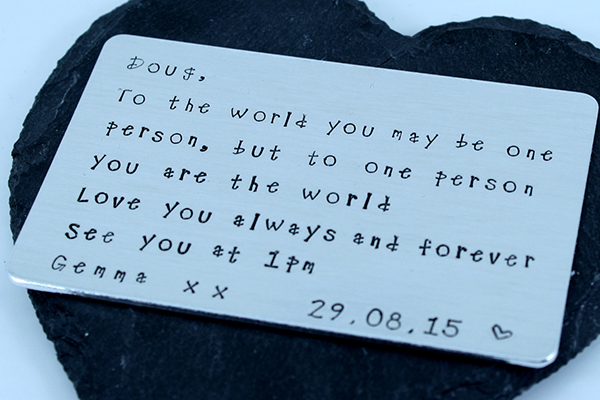 Doug,
To the world you may be one
person, but to one person
you are the world
Love you always and forever
See you at 1pm
Gemma xx
29.08.15 ♡